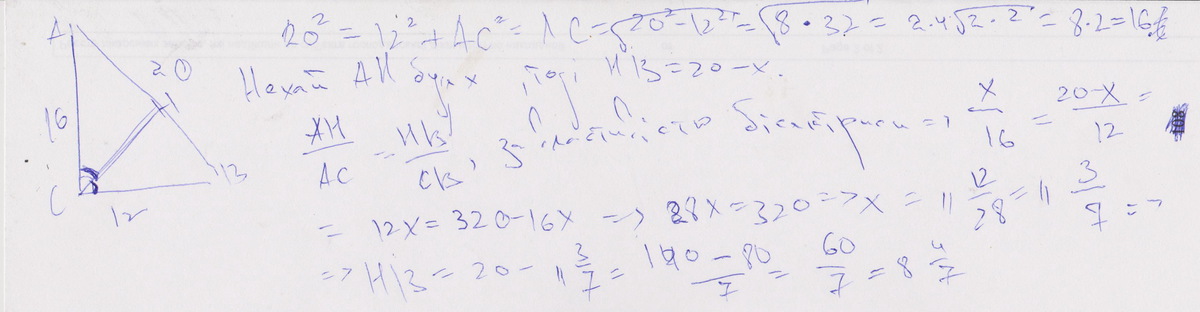 A
20
H
16
C
12
B
20² = 12² + AC² = AC = √20²-12² = √8 · 32 = 2·4√2·2 = 8·2 = 16
Нехай AH буде x, тоді HB = 20-x.
AH/AC = HB/CB, За властивістю бісектриси => x/16 = 20-x/12 =
= 12x = 320-16x => 28x = 320 => x = 11 12/28 = 11 3/7 =>
=> HB = 20 - 11 3/7 = 140-80/7 = 60/7 = 8 4/7